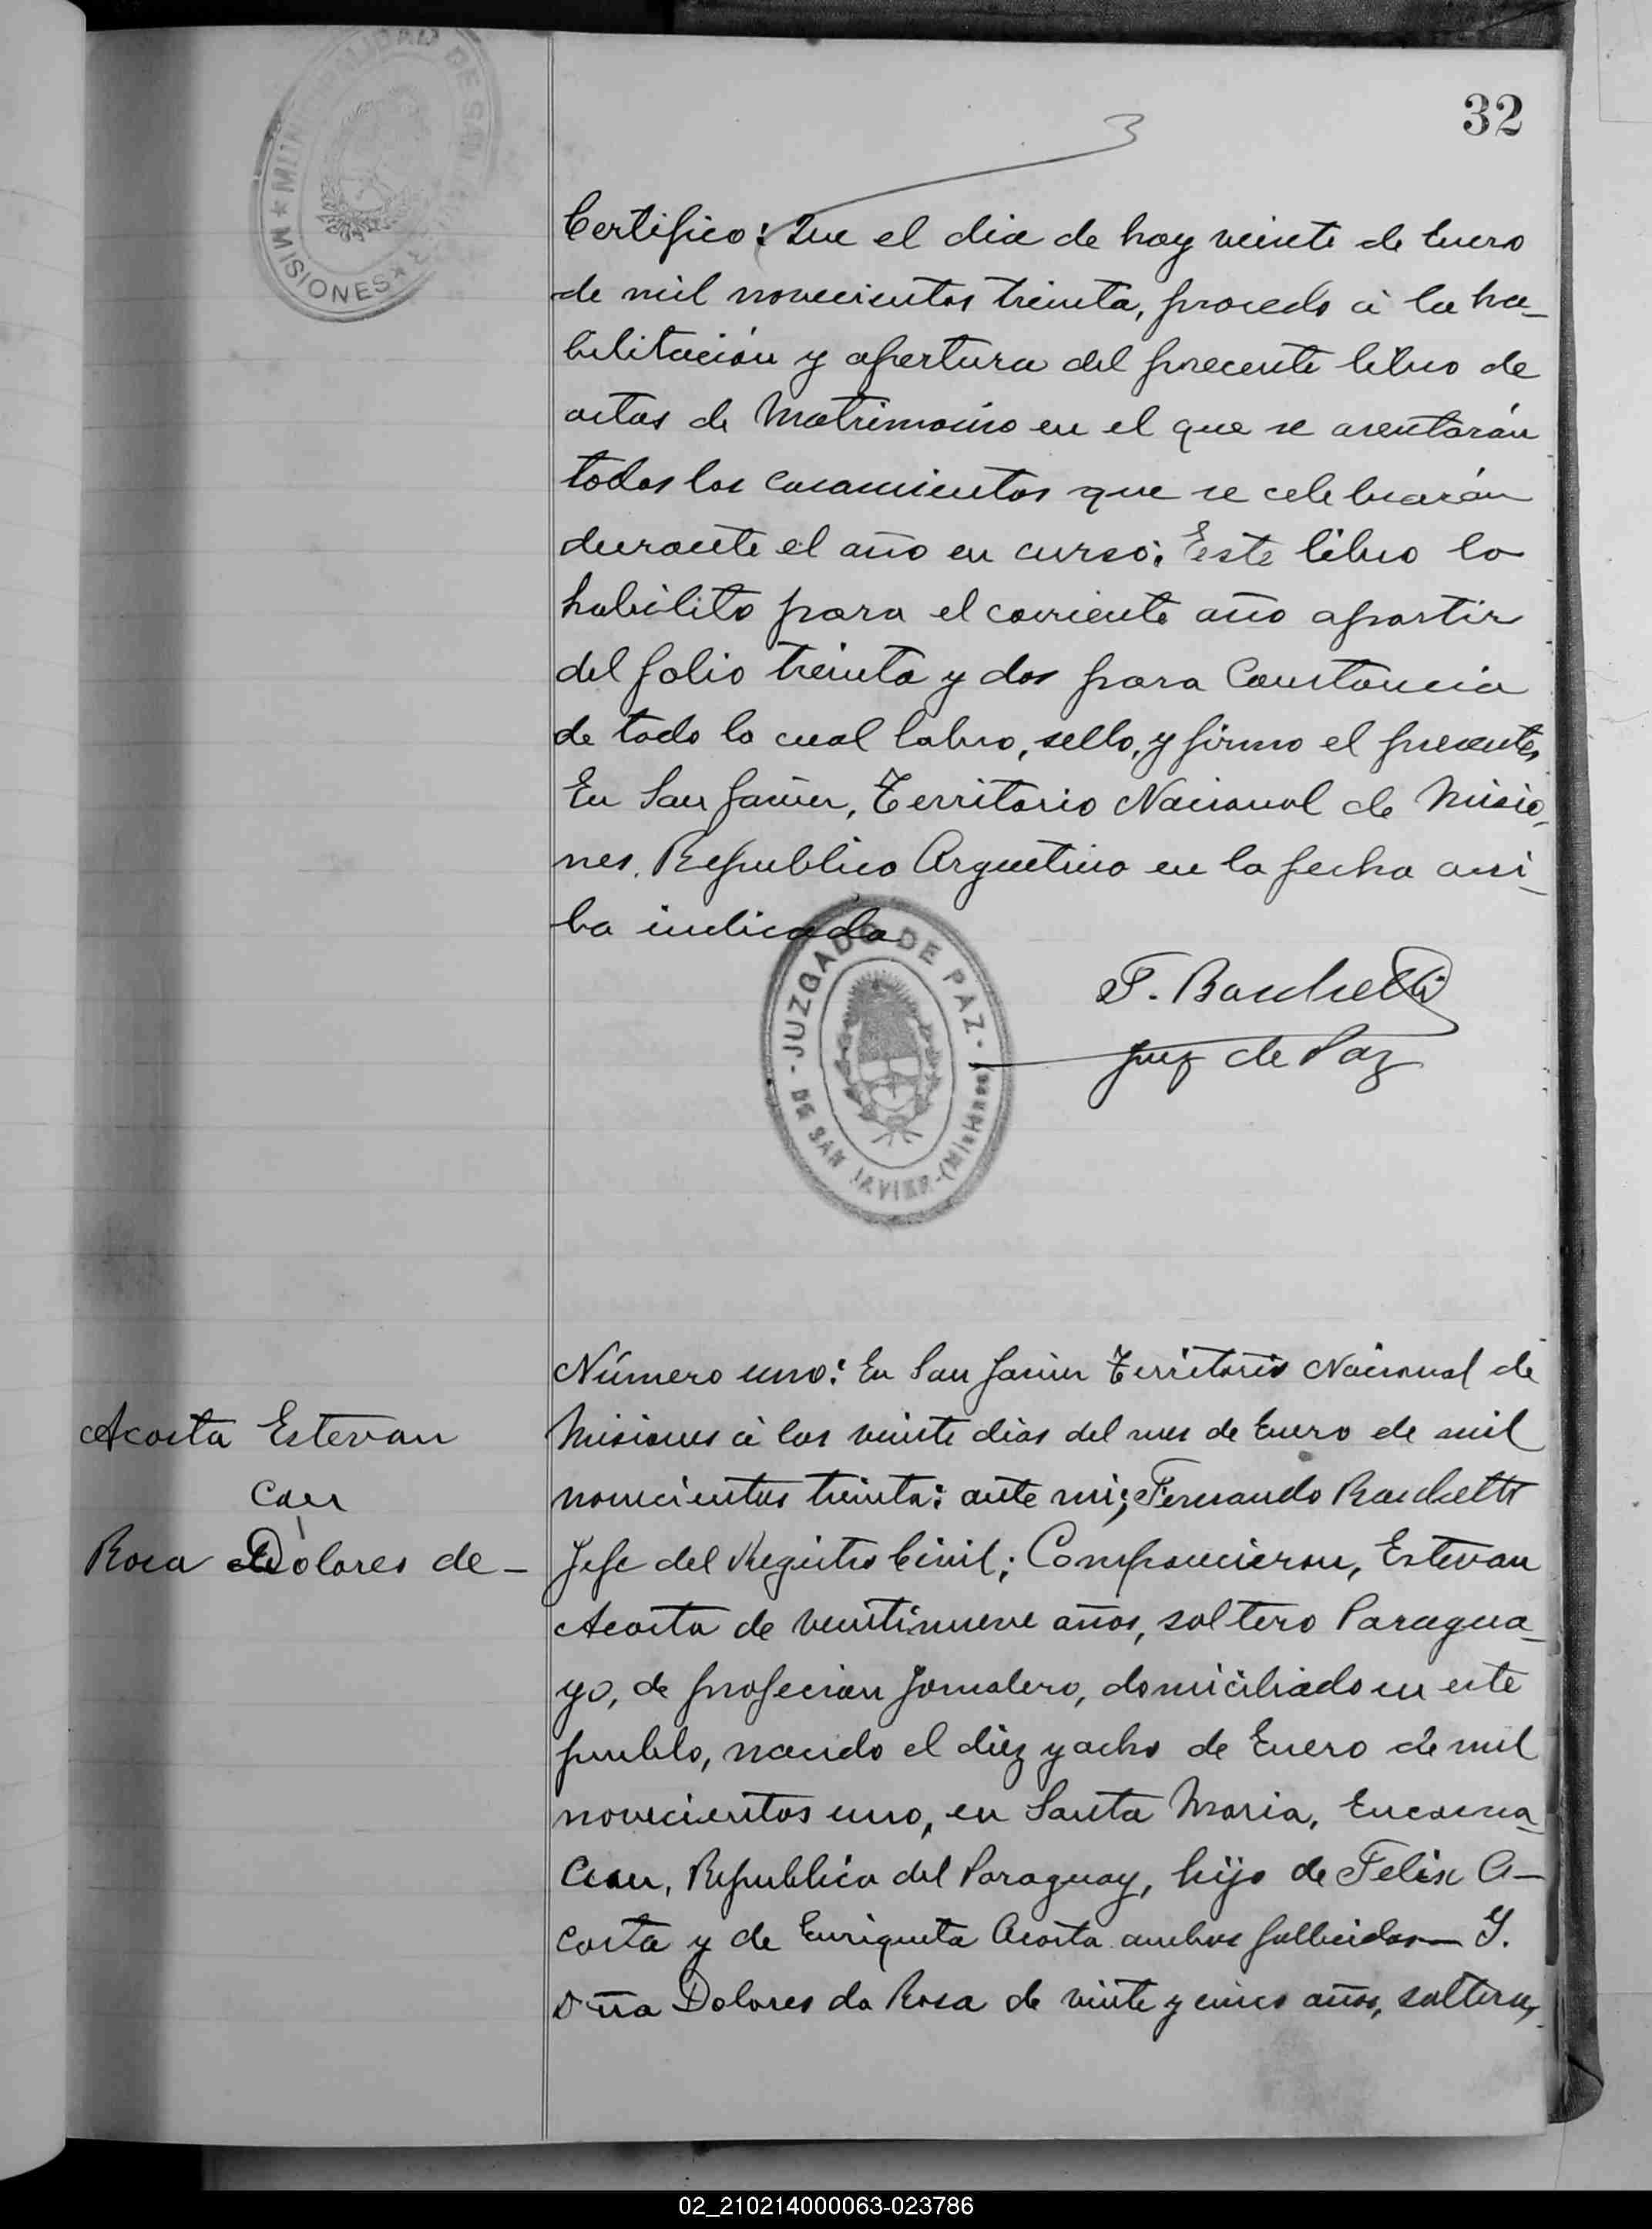 32
3
MUNICIPALIDAD DE SAN JAVIER
MISIONES
Certifico: Que el dia de hoy veinte de Enero
de mil novecientos treinta, procedo á la ha-
bilitación y apertura del precente libro de
actas de Matrimonio en el que se acentarán
todos los casamientos que se celebrarán
durante el año en curso: Este libro lo
habilito para el corriente año apartir
del folio treinta y dos para Constancia
de todo lo cual labro, sello, y firmo el precente,
En San Javier, Territorio Nacional de Misio-
nes. Republica Argentina en la fecha arri-
ba indicada
JUZGADO DE PAZ
DE SAN JAVIER - (Misiones)
F. Banchetti
Juez de Paz
Número uno: En San Javier Territorio Nacional de
Acosta Estevan
Misiones á los veinte dias del mes de Enero de mil
con
novecientos treinta: ante mi; Fernando Banchetti
Rosa Dolores de -
Jefe del Registro Civil; Comparecieron, Estevan
Acosta de veintinueve años, soltero Paragua-
yo, de profecion Jornalero, domiciliado en este
pueblo, nacido el diez y ocho de Enero de mil
novecientos uno, en Santa Maria, Encarna-
cion, Republica del Paraguay, hijo de Felix A-
costa y de Enriqueta Acosta ambos fallecidos — Y.
Dña Dolores da Rosa de veinte y cinco años, soltera,
02_210214000063-023786